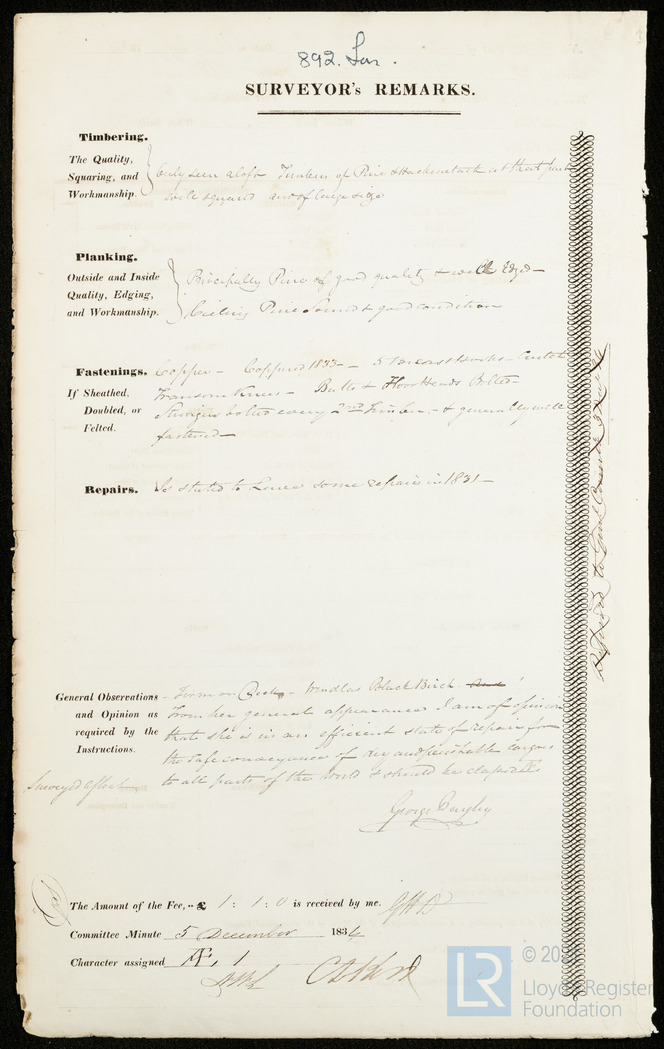 892. Lon.
SURVEYOR's REMARKS.
Timbering.
The Quality,
Squaring, and
Workmanship.
Only seen aloft Timbers of Pine & Hackmatack at that part
well squared and of large size
Planking.
Outside and Inside
Quality, Edging,
and Workmanship.
Principally Pine of good quality & well Edged —
Ceiling Pine Sound & good condition
Fastenings.
If Sheathed,
Doubled, or
Felted.
Copper — Coppered 1833 — 5 Breasthooks —
Transom Knees — Butts & Floor Heads Bolted —
bolted every 2nd Timber — & generally well
fastened —
Repairs.
Is stated to some repairs in 1831 —
General Observations
and Opinion as
required by the
Instructions.
Windlas Black Birch
From her general appearance I am of opinion
that she is in an efficient state of repair for
the safe conveyance of dry and perishable cargoes
to all parts of the world & should be classed Æ
Surveyed afloat
George Bayley
The Amount of the Fee, .. £ 1 : 1 : 0 is received by me.
Committee Minute 5 December 1834
Character assigned Æ, 1
© 202
LR
Lloyd's Register
Foundation